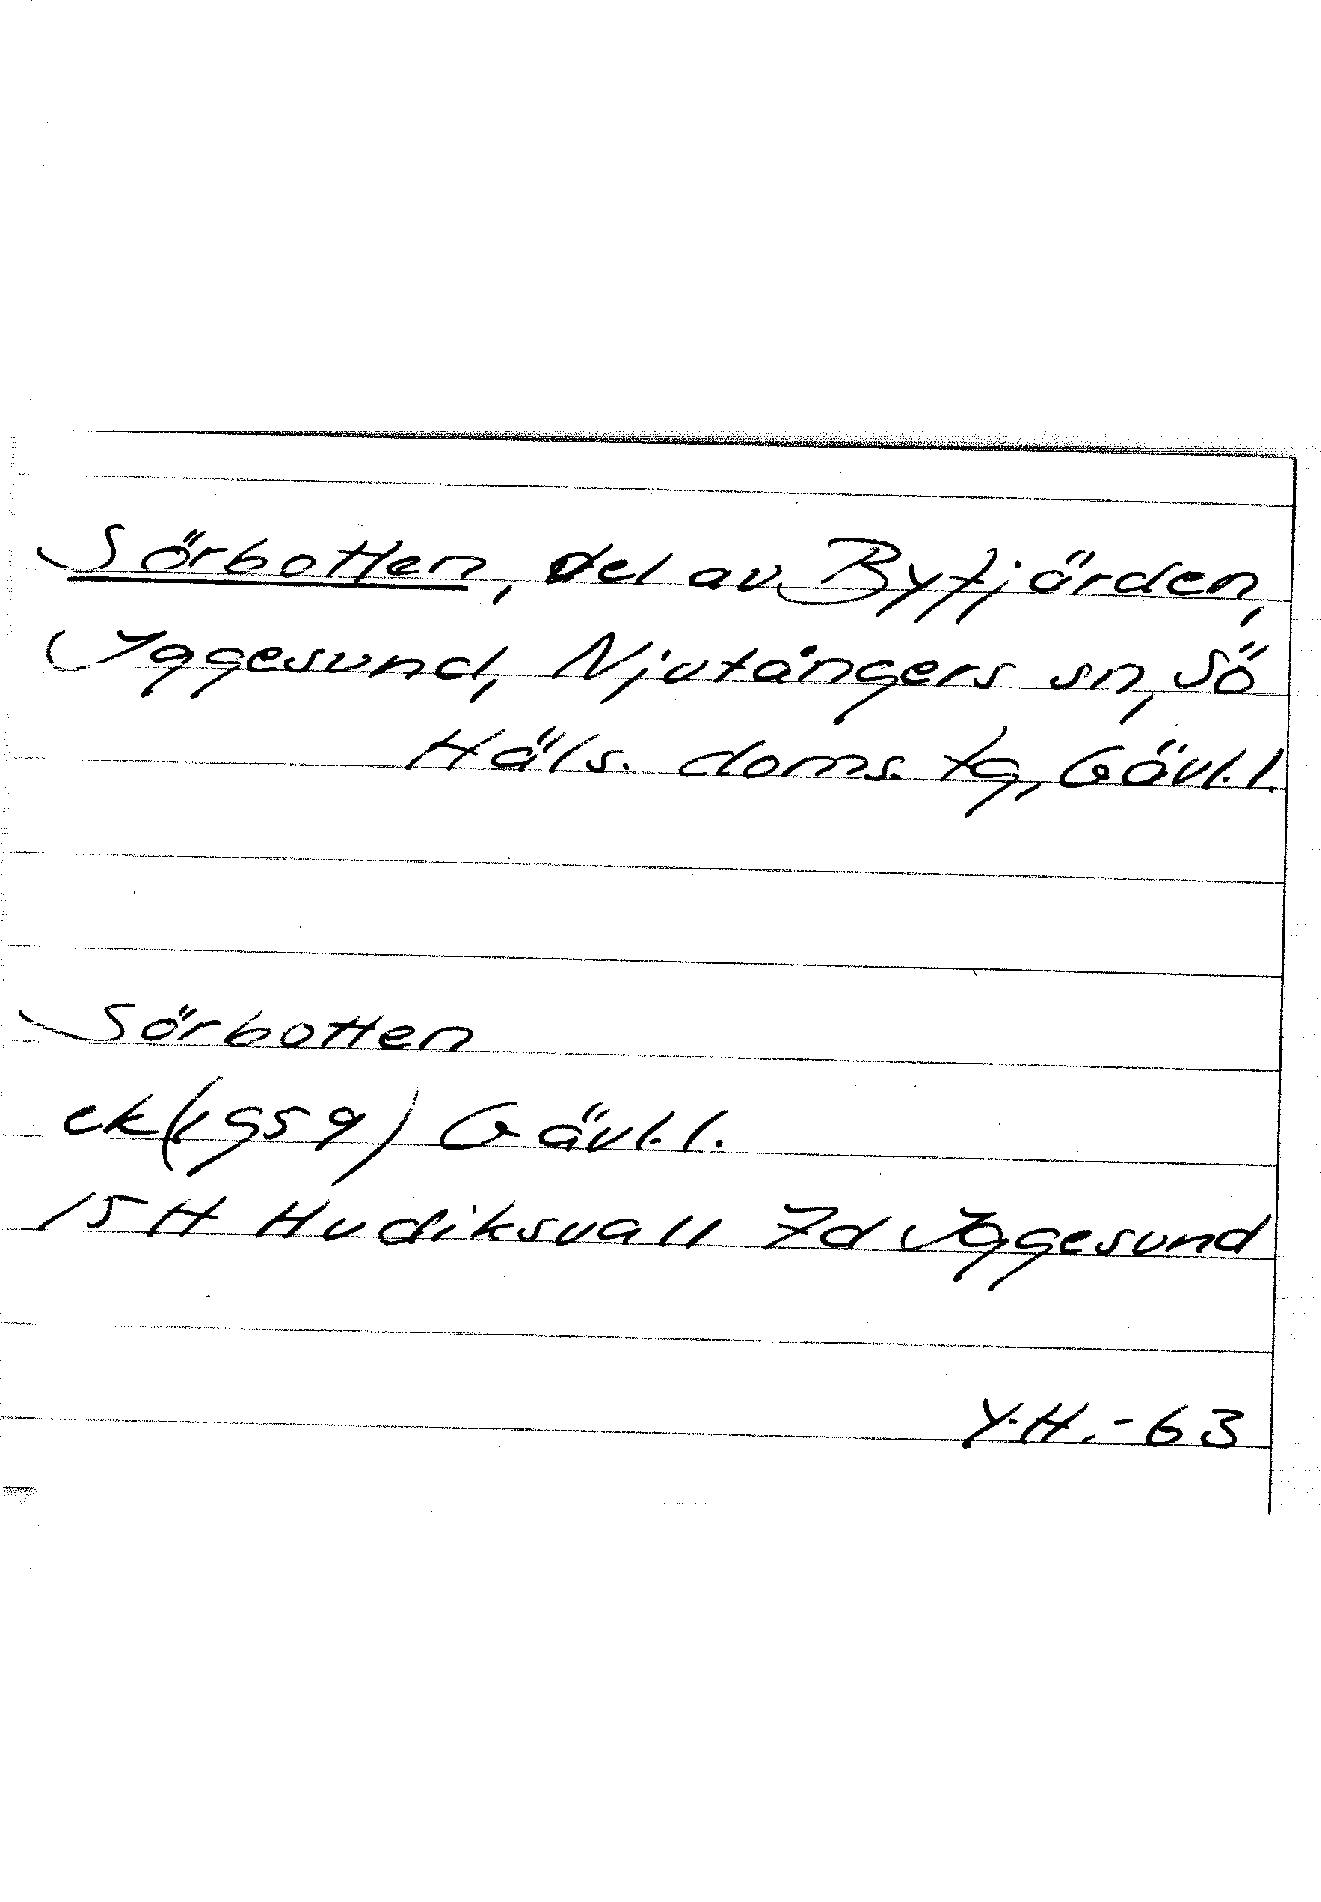 Sörbotten, del av Byfjärden,
Iggesund, Njutångers sn, Sö
Häls. doms. tg, Gävl. l.
Sörbotten
ek (1959) Gävl. l.
15 H Hudiksvall 7d Iggesund
Y.H. -63